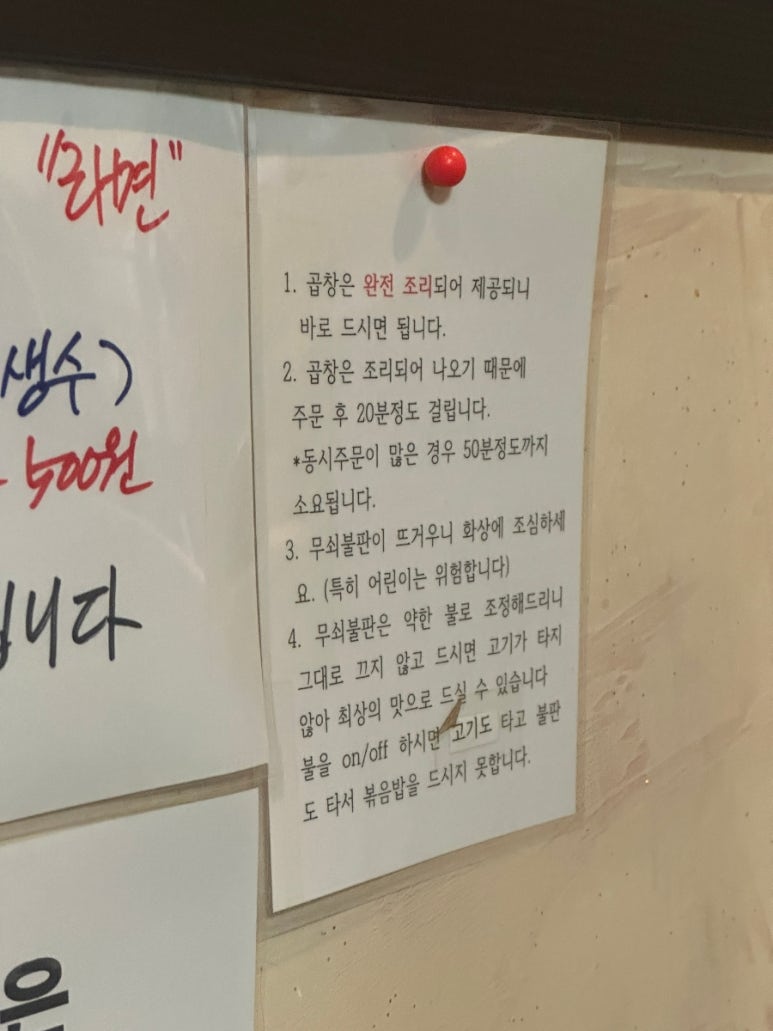 "라면"
생수)
500원
니다
은
1. 곱창은 완전 조리되어 제공되니
바로 드시면 됩니다.
2. 곱창은 조리되어 나오기 때문에
주문 후 20분정도 걸립니다.
*동시주문이 많은 경우 50분정도까지
소요됩니다.
3. 무쇠불판이 뜨거우니 화상에 조심하세
요. (특히 어린이는 위험합니다)
4. 무쇠불판은 약한 불로 조정해드리니
그대로 끄지 않고 드시면 고기가 타지
않아 최상의 맛으로 드실 수 있습니다
불을 on/off 하시면 고기도 타고 불판
도 타서 볶음밥을 드시지 못합니다.